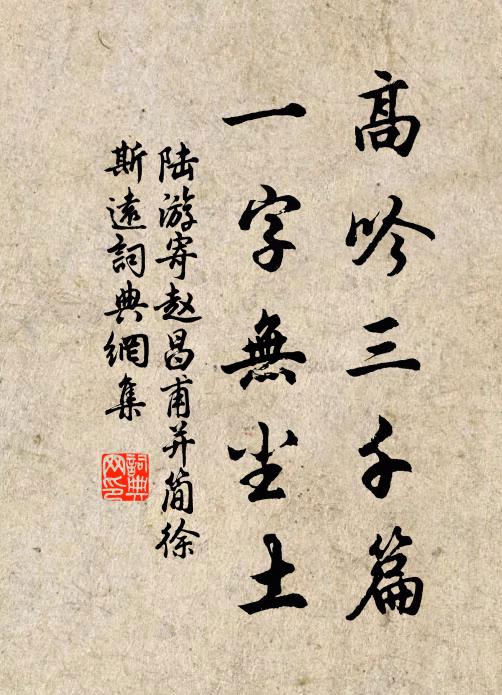 高吟三千篇
一字無尘土
陆游寄赵昌甫并简徐
斯遠詞典網集
詞典
网印